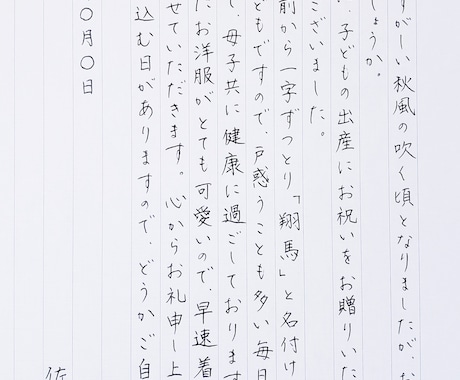 すがしい秋風の吹く頃となりましたが、お
しょうか。
、子どもの出産にお祝いをお贈りいた
ございました。
前から一字ずつとり「翔馬」と名付け
どもですので、戸惑うことも多い毎日
て、母子共に健康に過ごしております
たお洋服がとても可愛いので、早速着
せていただきます。心からお礼申し上
込む日がありますので、どうかご自
〇月〇日
佐